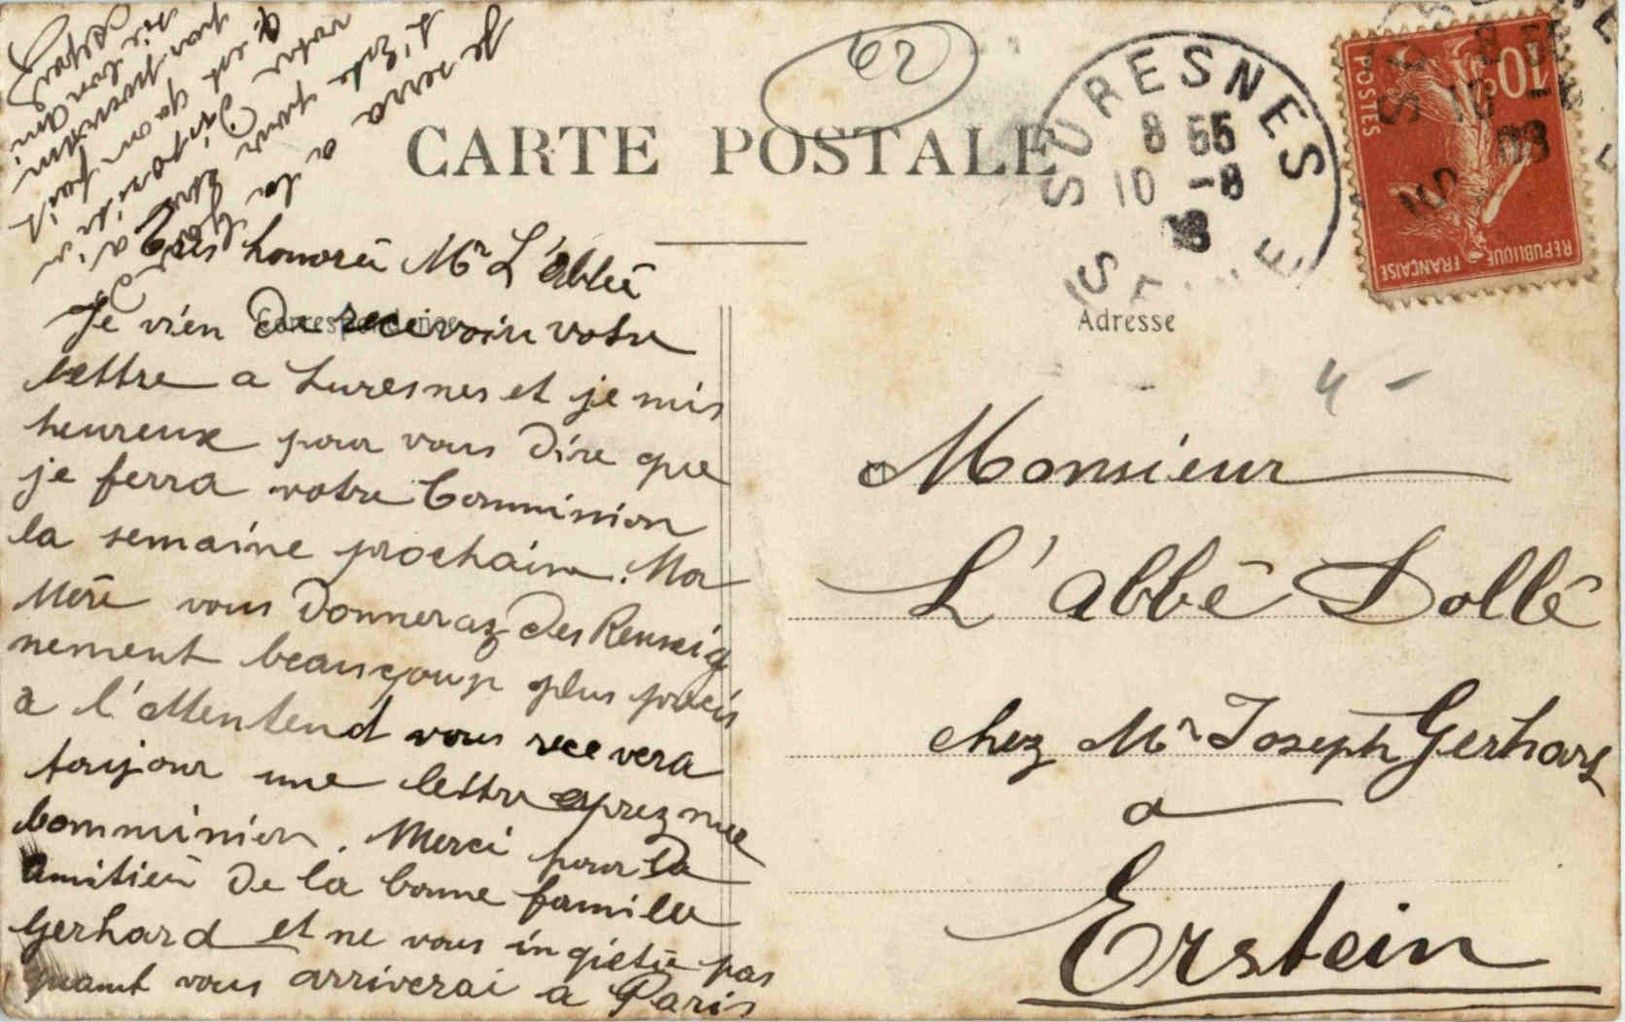 62
CARTE POSTALE
SURESNES
8 55
10 -8
SE E
10c
POSTES
REPUBLIQUE FRANÇAISE
Correspondance
Adresse
4 -
Très honoréé Mr L'abbéé
Je vien de recevoire votre
lettre a Suresnes et je suis
heureux pour vous dire que
je ferra votre Commission
la semaine prochaine. Ma
Mère vous donneraz des Renseig
nement beaucoup plus précis
a l'attentend vous recevera
toujour une lettre aprez mee
Commission. Merci pour la
amitiéé de la bonne famille
Gerhard et ne vous inqietée pas
quant vous arriverai a Paris
Je serra a la
d'Este pour vous
votre
Monsieur
L'abbé Dollé
chez Mr Joseph Gerhard
a
Erstein